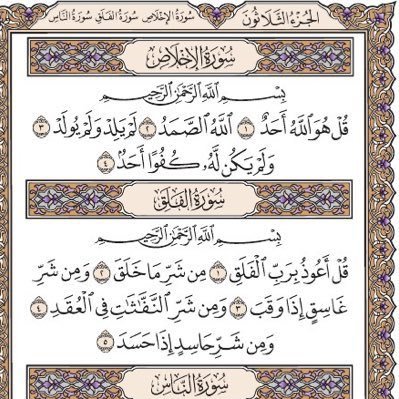 الجزء الثلاثون سورة الإخلاص سورة الفلق سورة الناس
سُورَةُ الإِخْلَاصِ
بِسْمِ اللَّهِ الرَّحْمَٰنِ الرَّحِيمِ
قُلْ هُوَ اللَّهُ أَحَدٌ ١ اللَّهُ الصَّمَدُ ٢ لَمْ يَلِدْ وَلَمْ يُولَدْ ٣
وَلَمْ يَكُن لَّهُۥ كُفُوًا أَحَدٌۢ ٤
سُورَةُ الفَلَقِ
بِسْمِ اللَّهِ الرَّحْمَٰنِ الرَّحِيمِ
قُلْ أَعُوذُ بِرَبِّ الْفَلَقِ ١ مِن شَرِّ مَا خَلَقَ ٢ وَمِن شَرِّ
غَاسِقٍ إِذَا وَقَبَ ٣ وَمِن شَرِّ النَّفَّٰثَٰتِ فِي الْعُقَدِ ٤
وَمِن شَرِّ حَاسِدٍ إِذَا حَسَدَ ٥
سُورَةُ النَّاسِ